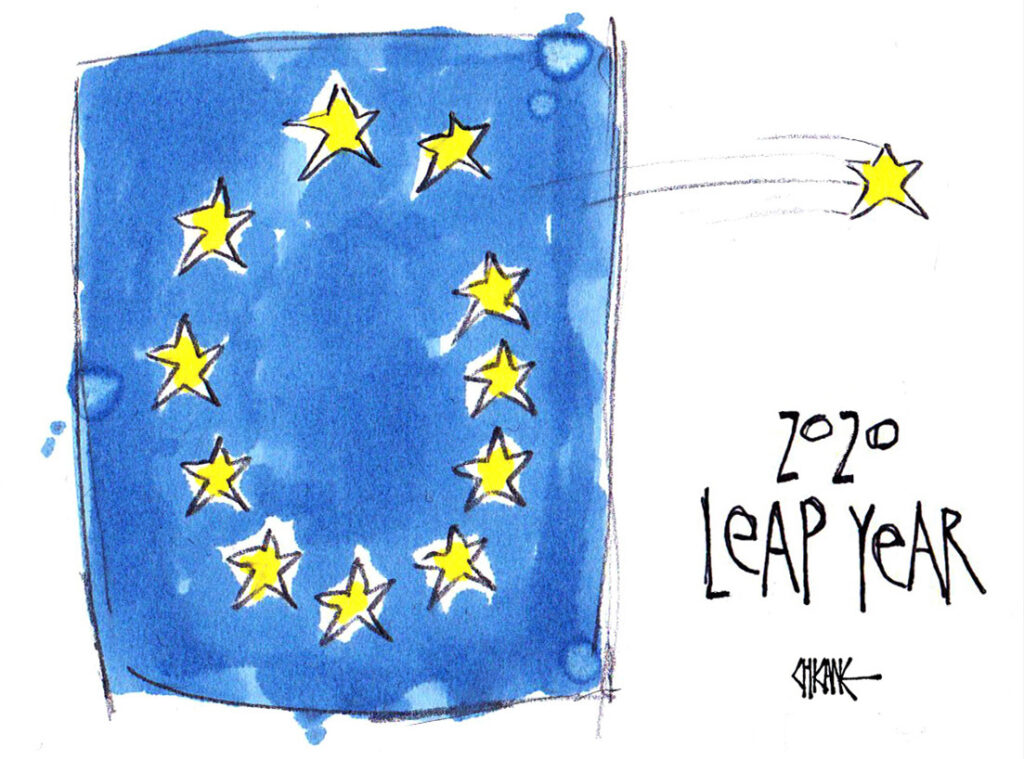 2020
LeAP YeAR
CHICANE